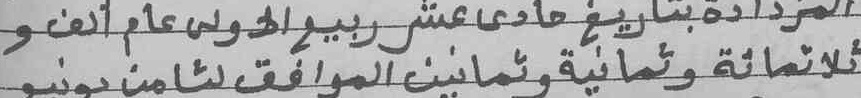 المزدادة بتاريخ حادى عشر ربيع الاولى عام ألف و
ثلاثمائة وثمانية وثمانين الموافق لثامن يونيو